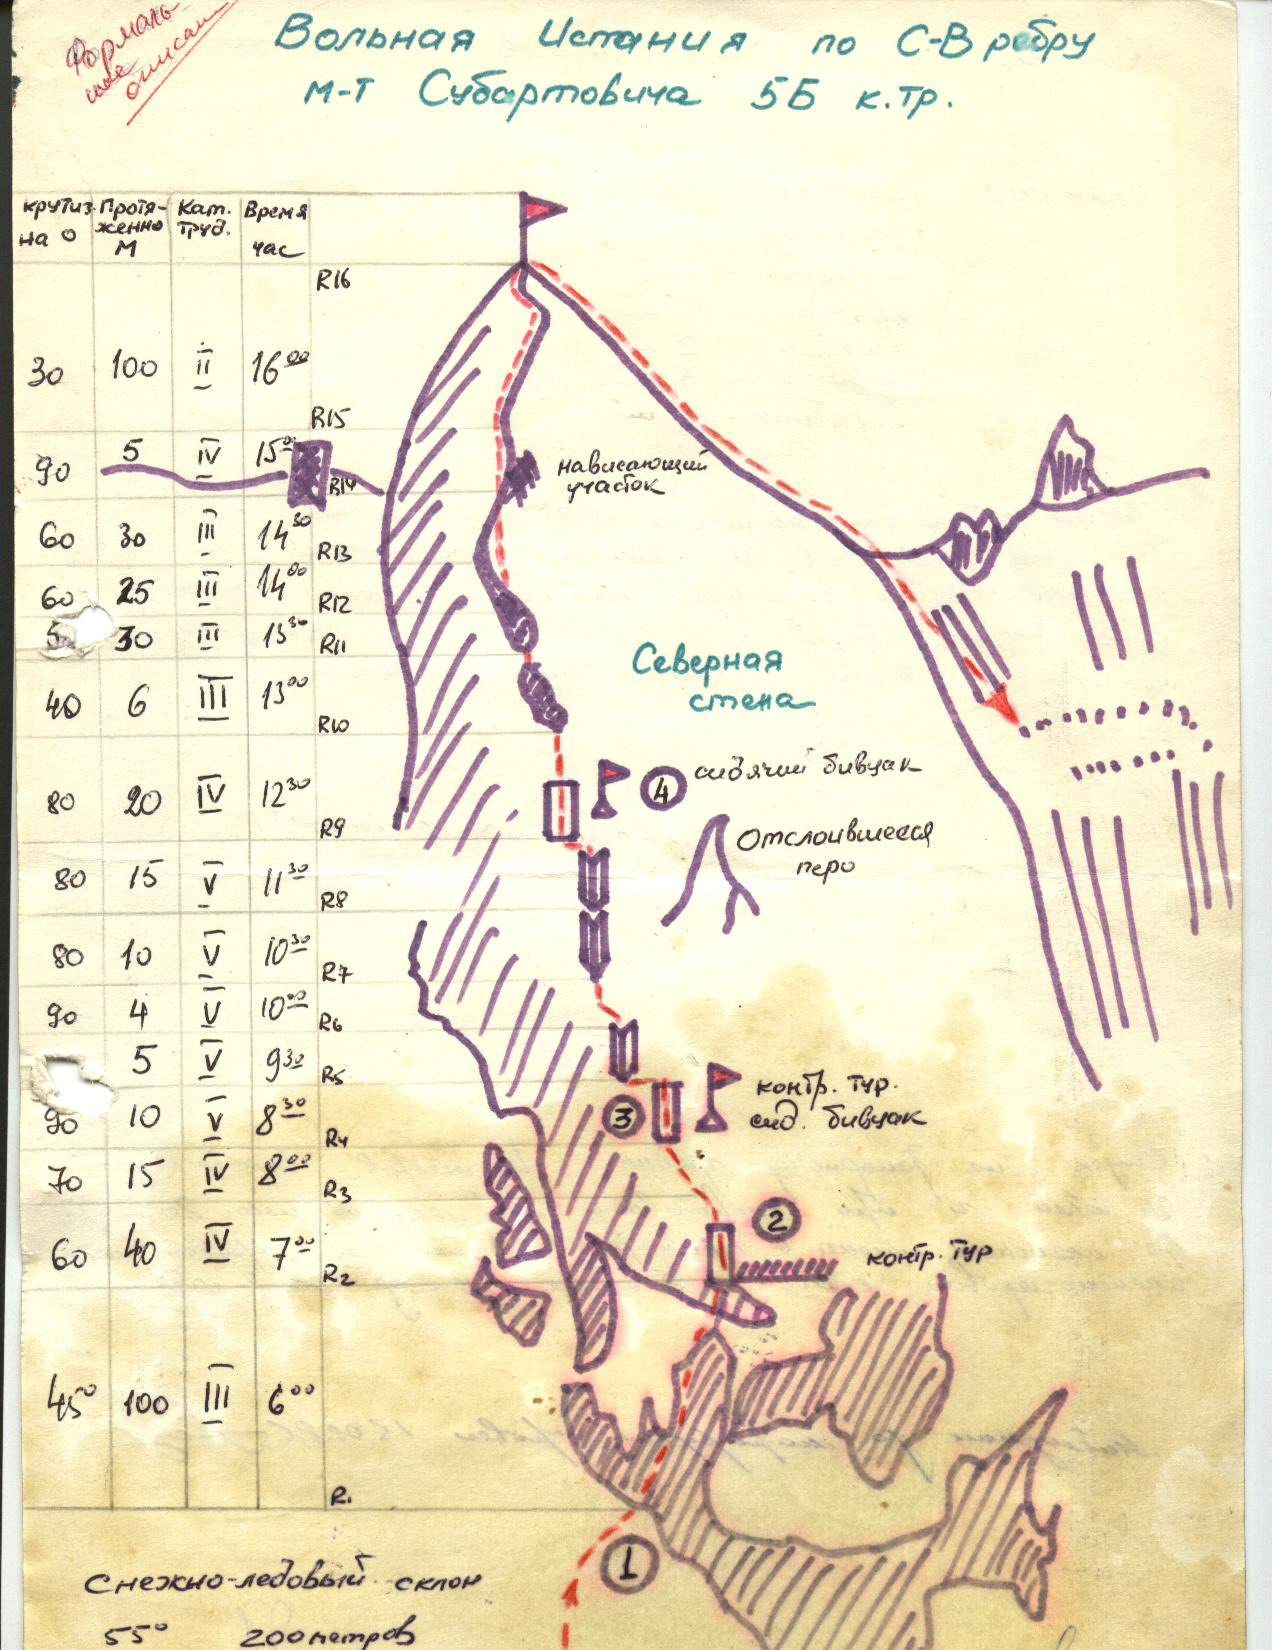 Формаль-
ное
описан
Вольная Испания по С-В ребру
М-Т Субартовича 5Б к.тр.
крутиз на 0 | Протя-женно М | Кат. труд. | Время час
R16
30 100 II 16 00
R15
90 5 IV 15 0
R14
нависающий
участок
60 30 III 14 30
R13
60 25 III 14 00
R12
30 III 13 30
R11
Северная
стена
40 6 III 13 00
R10
4 сидячий бивуак
80 20 IV 12 30
R9
Отслоившееся
перо
80 15 V 11 30
R8
80 10 V 10 30
R7
90 4 V 10 00
R6
5 V 9 30
R5
контр. тур.
сид. бивуак
3
90 10 V 8 30
R4
70 15 IV 8 00
R3
2
60 40 IV 7 00
контр. тур
R2
45° 100 III 6 00
R1
1
Снежно-ледовый склон
55° 200 метров